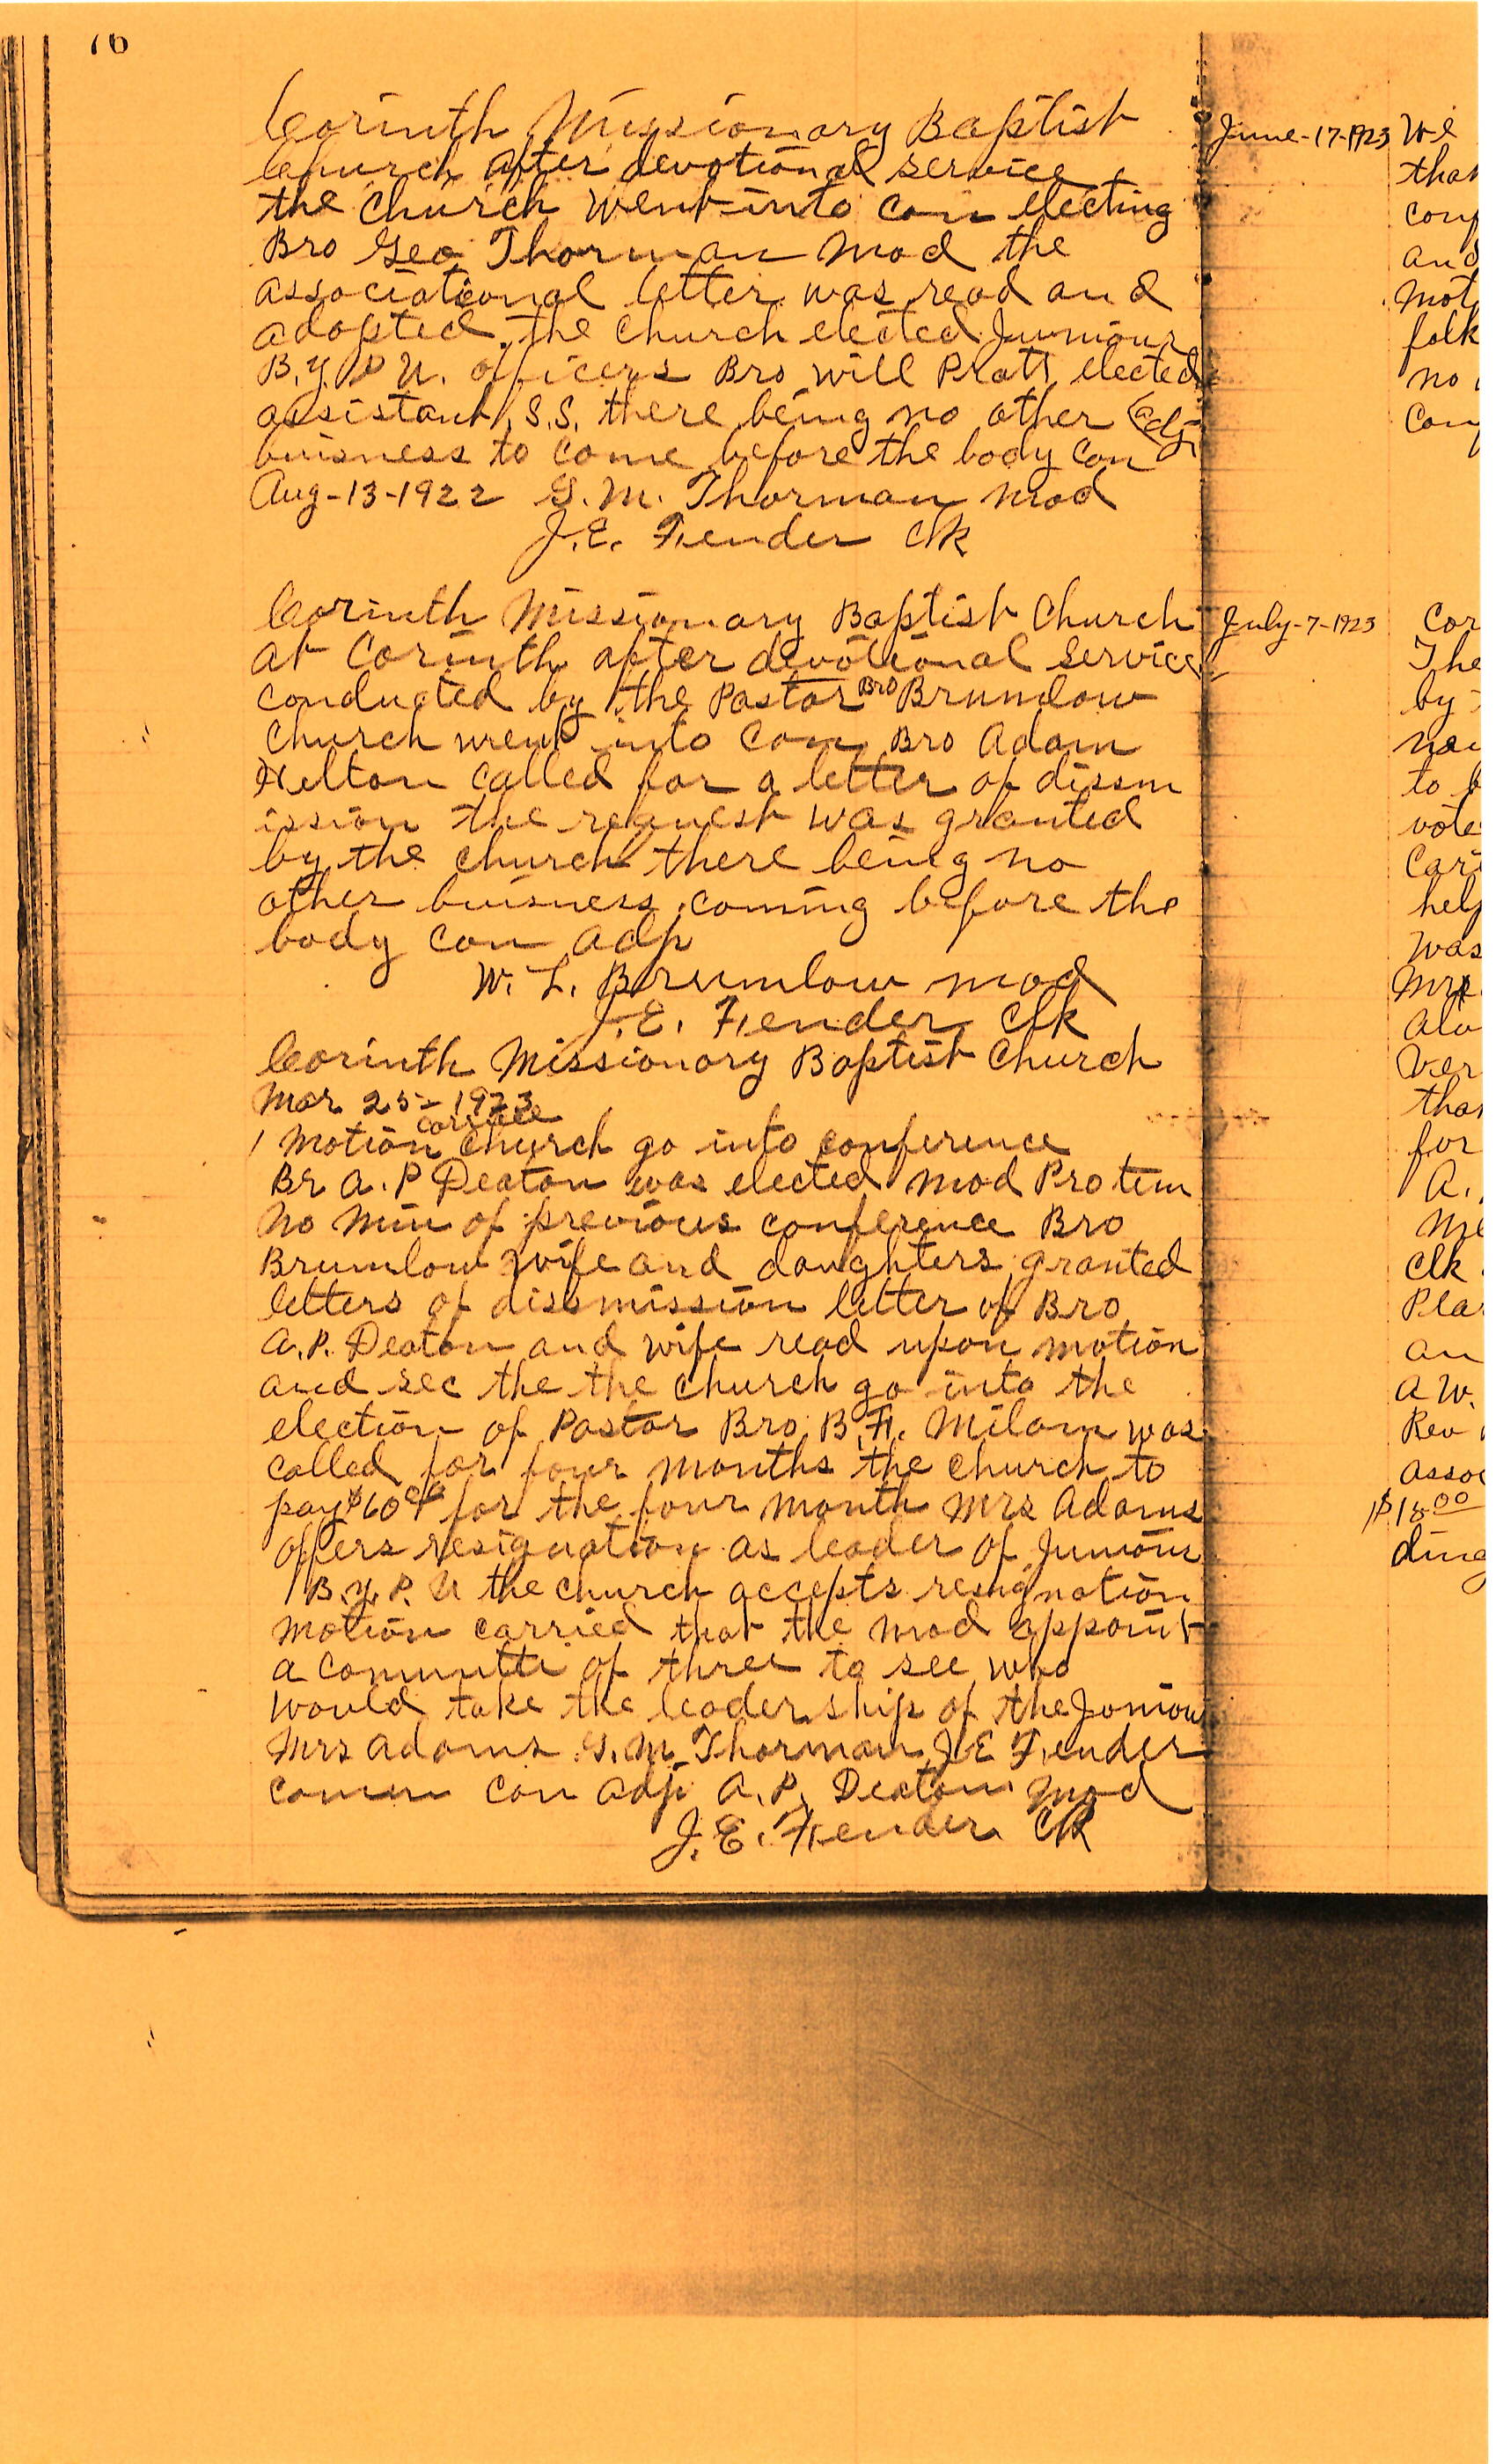 76
Corinth Missionary Baptist
Church after devotional service
the Church went into con electing
Bro Geo Thorman Mod the
associational letter was read and
adopted. the church elected Juniour
B.Y.P.U. officers Bro will Pratt elected
assistant S.S. there being no other adj
buisness to come before the body Con
Aug-13-1922 G.M. Thorman Mod
J.E. Fender Clk
Corinth Missionary Baptist Church
at Corinth after devotional service
conducted by the Pastor Bro Brumlow
Church went into Con Bro Adam
Helton called for a letter of dissm
ission the request was granted
by the church there being no
other buisness coming before the
body con adj
W. L. Brumlow mod
J.E. Fender Clk
Corinth Missionary Baptist Church
Mar 25-1923
carried
1 Motion Church go into conference
Br A.P Deaton was elected Mod Pro tem
No Min of previous conference Bro
Brumlow wife and daughters granted
letters of dissmission letter of Bro
A.P. Deaton and wife read upon motion
and sec the the church go into the
election of Pastor Bro. B.F. Milam was
called for four months the church to
pay $60.00 for the four month Mrs Adams
offers resignation as leader of Juniour
B.Y.P.U the church accepts resignation
motion carried that the mod appoint
a committe of three to see who
would take the leadership of the Juniour
Mrs Adams G.M. Thorman J E Fender
comm con adj A.P. Deaton Mod
J.E. Fender Clk
June-17-1923 We
than
conf
and
Mot
folk
no
Con
July-7-1923 Cor
The
by
new
to b
vote
Car
help
was
Mrs
Alv
Ver
than
for
A.
Me
Clk
Plan
an
A W.
Rev
assoc
$18.00
ding